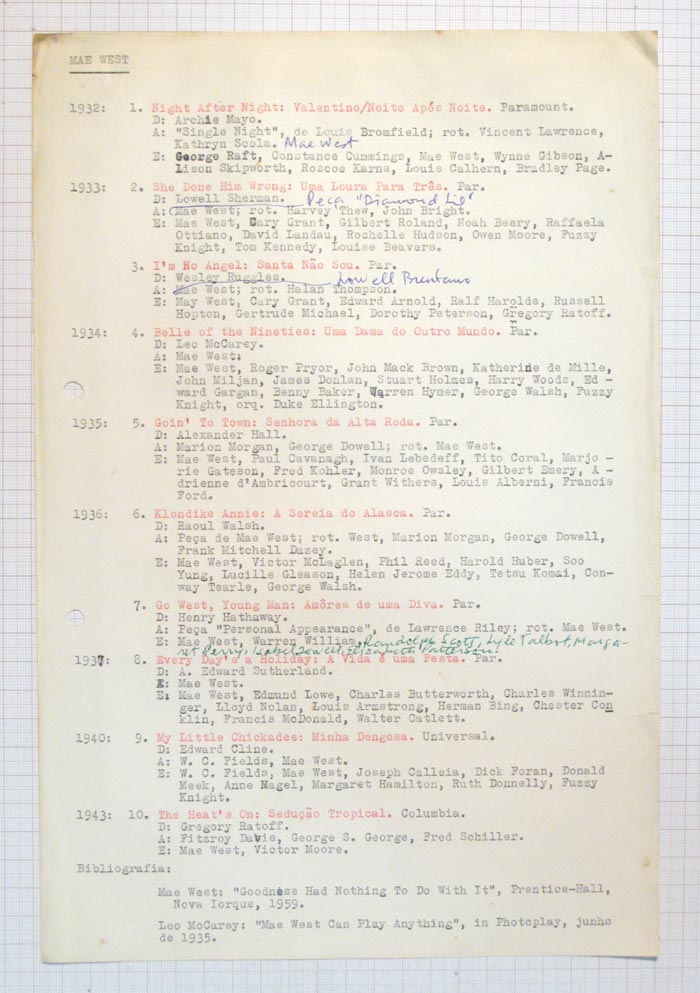 MAE WEST
1932: 1. Night After Night: Valentino/Noite Após Noite. Paramount.
D: Archie Mayo.
A: "Single Night", de Louis Bromfield; rot. Vincent Lawrence,
Kathryn Scola. Mae West
E: George Raft, Constance Cummings, Mae West, Wynne Gibson, A-
lison Skipworth, Roscoe Karns, Louis Calhern, Bradley Page.
1933: 2. She Done Him Wrong: Uma Loura Para Três. Par.
D: Lowell Sherman. Peça "Diamond Lil"
A: Mae West; rot. Harvey Thew, John Bright.
E: Mae West, Cary Grant, Gilbert Roland, Noah Beery, Raffaela
Ottiano, David Landau, Rochelle Hudson, Owen Moore, Fuzzy
Knight, Tom Kennedy, Louise Beavers.
3. I'm No Angel: Santa Não Sou. Par.
D: Wesley Ruggles. Lowell Brentano
A: Mae West; rot. Halan Thompson.
E: May West, Cary Grant, Edward Arnold, Ralf Harolds, Russell
Hopton, Gertrude Michael, Dorothy Peterson, Gregory Ratoff.
1934: 4. Belle of the Nineties: Uma Dama do Outro Mundo. Par.
D: Leo McCarey.
A: Mae West:
E: Mae West, Roger Pryor, John Mack Brown, Katherine de Mille,
John Miljan, James Donlan, Stuart Holmes, Harry Woods, Ed -
ward Gargan, Benny Baker, Warren Hymer, George Walsh, Fuzzy
Knight, orq. Duke Ellington.
1935: 5. Goin' To Town: Senhora da Alta Roda. Par.
D: Alexander Hall.
A: Marion Morgan, George Dowell; rot. Mae West.
E: Mae West, Paul Cavanagh, Ivan Lebedeff, Tito Coral, Marjo -
rie Gateson, Fred Kohler, Monroe Owsley, Gilbert Emery, A -
drienne d'Ambricourt, Grant Withers, Louis Alberni, Francis
Ford.
1936: 6. Klondike Annie: A Sereia do Alasca. Par.
D: Raoul Walsh.
A: Peça de Mae West; rot. West, Marion Morgan, George Dowell,
Frank Mitchell Dazey.
E: Mae West, Victor McLaglen, Phil Reed, Harold Huber, Soo
Yung, Lucille Gleason, Helen Jerome Eddy, Tetsu Komai, Con-
way Tearle, George Walsh.
7. Go West, Young Man: Amôres de uma Diva. Par.
D: Henry Hathaway.
A: Peça "Personal Appearance", de Lawrence Riley; rot. Mae West.
E: Mae West, Warren William, Randolph Scott, Lyle Talbot, Marga-
ret Perry, Isabel Jewell, Elizabeth Patterson.
1937: 8. Every Day's a Holiday: A Vida é uma Festa. Par.
D: A. Edward Sutherland.
A: Mae West.
E: Mae West, Edmund Lowe, Charles Butterworth, Charles Winnin-
ger, Lloyd Nolan, Louis Armstrong, Herman Bing, Chester Con
klin, Francis McDonald, Walter Catlett.
1940: 9. My Little Chickadee: Minha Dengosa. Universal.
D: Edward Cline.
A: W. C. Fields, Mae West.
E: W. C. Fields, Mae West, Joseph Calleia, Dick Foran, Donald
Meek, Anne Nagel, Margaret Hamilton, Ruth Donnelly, Fuzzy
Knight.
1943: 10. The Heat's On: Sedução Tropical. Columbia.
D: Gregory Ratoff.
A: Fitzroy Davis, George S. George, Fred Schiller.
E: Mae West, Victor Moore.
Bibliografia:
Mae West: "Goodness Had Nothing To Do With It", Prentice-Hall,
Nova Iorque, 1959.
Leo McCarey: "Mae West Can Play Anything", in Photoplay, junho
de 1935.